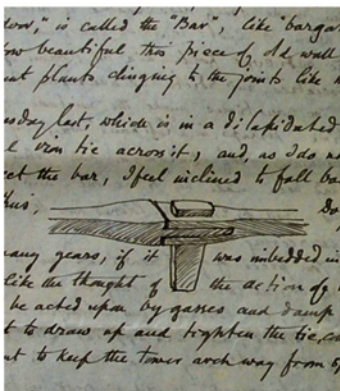 door," is called the "Bar", like "barga
how beautiful this piece of old wall
plants clinging to the joints like
last, which is in a dilapidated
iron tie across it, and, as I do
the bar, I feel inclined to fall ba
thus, Do
many gears, if it was imbedded in
like the thought of the action of
be acted upon by gasses and damp
to draw up and tighten the tie,
to keep the tower arch way from